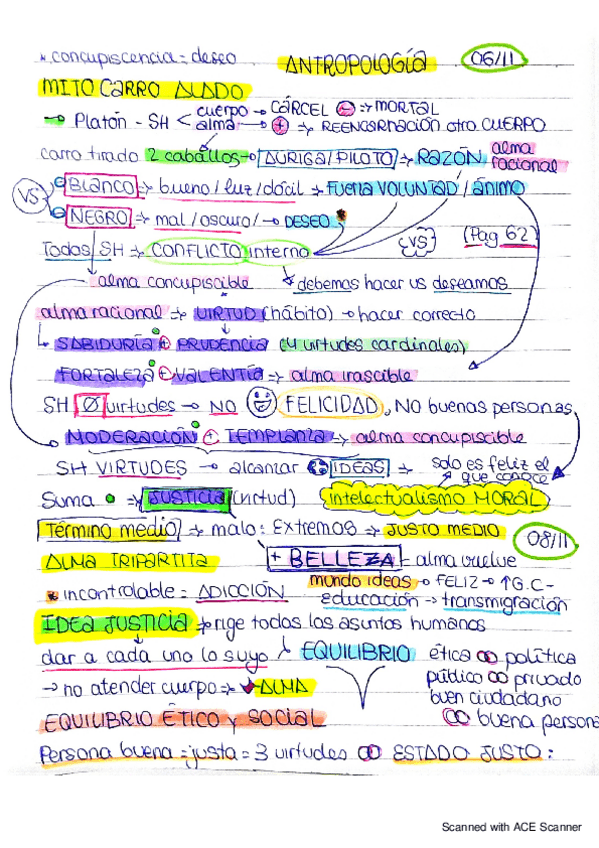 * concupiscencia = deseo ANTROPOLOGÍA 06/11
MITO CARRO ALADO
→ Platón - SH < cuerpo → CÁRCEL ⊖ → MORTAL
alma → ⊕ → REENCARNACIÓN otro CUERPO
carro tirado 2 caballos → AURIGA/PILOTO → RAZÓN alma racional
VS BLANCO → bueno/luz/dócil → Fuerza VOLUNTAD/ánimo
NEGRO → mal/oscuro/ → DESEO *
Todos SH → CONFLICTO interno VS (Pag 62)
alma concupiscible debemos hacer vs deseamos
alma racional → VIRTUD (hábito) → hacer correcto
↳ SABIDURÍA + PRUDENCIA (4 virtudes cardinales)
FORTALEZA + VALENTÍA → alma irascible
SH Ø virtudes → NO FELICIDAD, No buenas personas
MODERACIÓN + TEMPLANZA → alma concupiscible
SH VIRTUDES → alcanzar IDEAS → solo es feliz el que conoce
Suma • → JUSTICIA (virtud) intelectualismo MORAL
Término medio → malo: Extremos → JUSTO MEDIO 08/11
ALMA TRIPARTITA + BELLEZA - alma vuelve
mundo ideas → FELIZ → ↑G.C-
* incontrolable = ADICCIÓN educación → transmigración
IDEA JUSTICIA → rige todos los asuntos humanos
dar a cada uno lo suyo EQUILIBRIO ética ∞ política
público ∞ privado
→ no atender cuerpo → ↓ALMA buen ciudadano
EQUILIBRIO ÉTICO y SOCIAL ∞ buena persona
Persona buena = justa = 3 virtudes ∞ ESTADO JUSTO:
Scanned with ACE Scanner